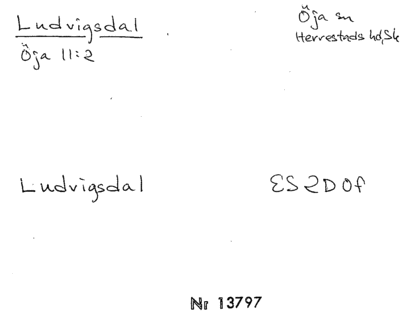 Ludvigsdal
Öja 11:2
Öja sn
Herrestads hd, Sk
Ludvigsdal
ES2D0f
Nr 13797